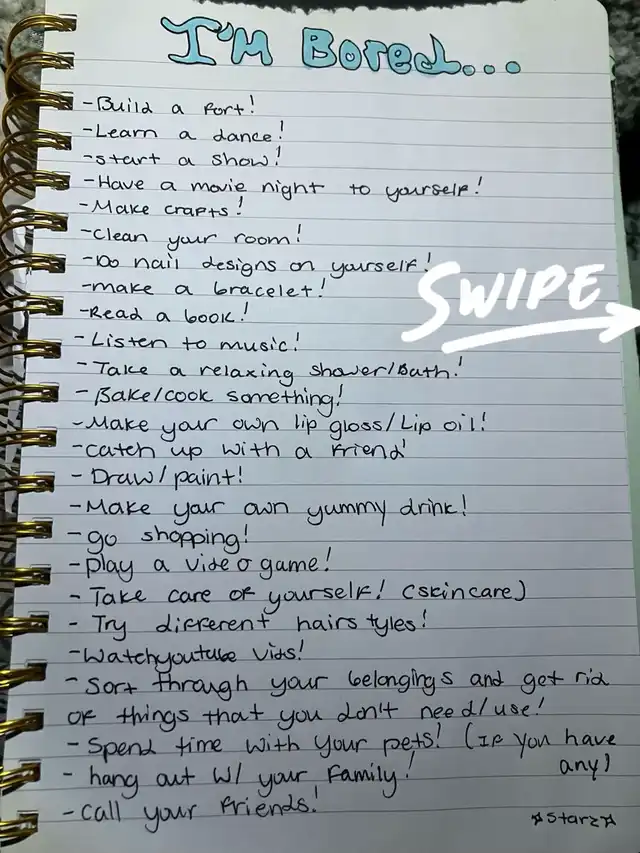 I'M Bored...
-Build a fort!
-Learn a dance!
-start a show!
-Have a movie night to yourself!
-Make crafts!
-clean your room!
-Do nail designs on yourself!
-make a bracelet!
-Read a book!
SWIPE
-Listen to music!
-Take a relaxing shower/Bath!
-Bake/cook something!
-Make your own lip gloss/Lip oil!
-catch up with a friend!
-Draw/paint!
-Make your own yummy drink!
-go shopping!
-play a video game!
-Take care of yourself! (skincare)
-Try different hairstyles!
-Watch youtube vids!
-Sort through your belongings and get rid
of things that you don't need/use!
-Spend time with your pets! (If you have
any)
-hang out w/ your family!
-call your friends!
☆starz☆